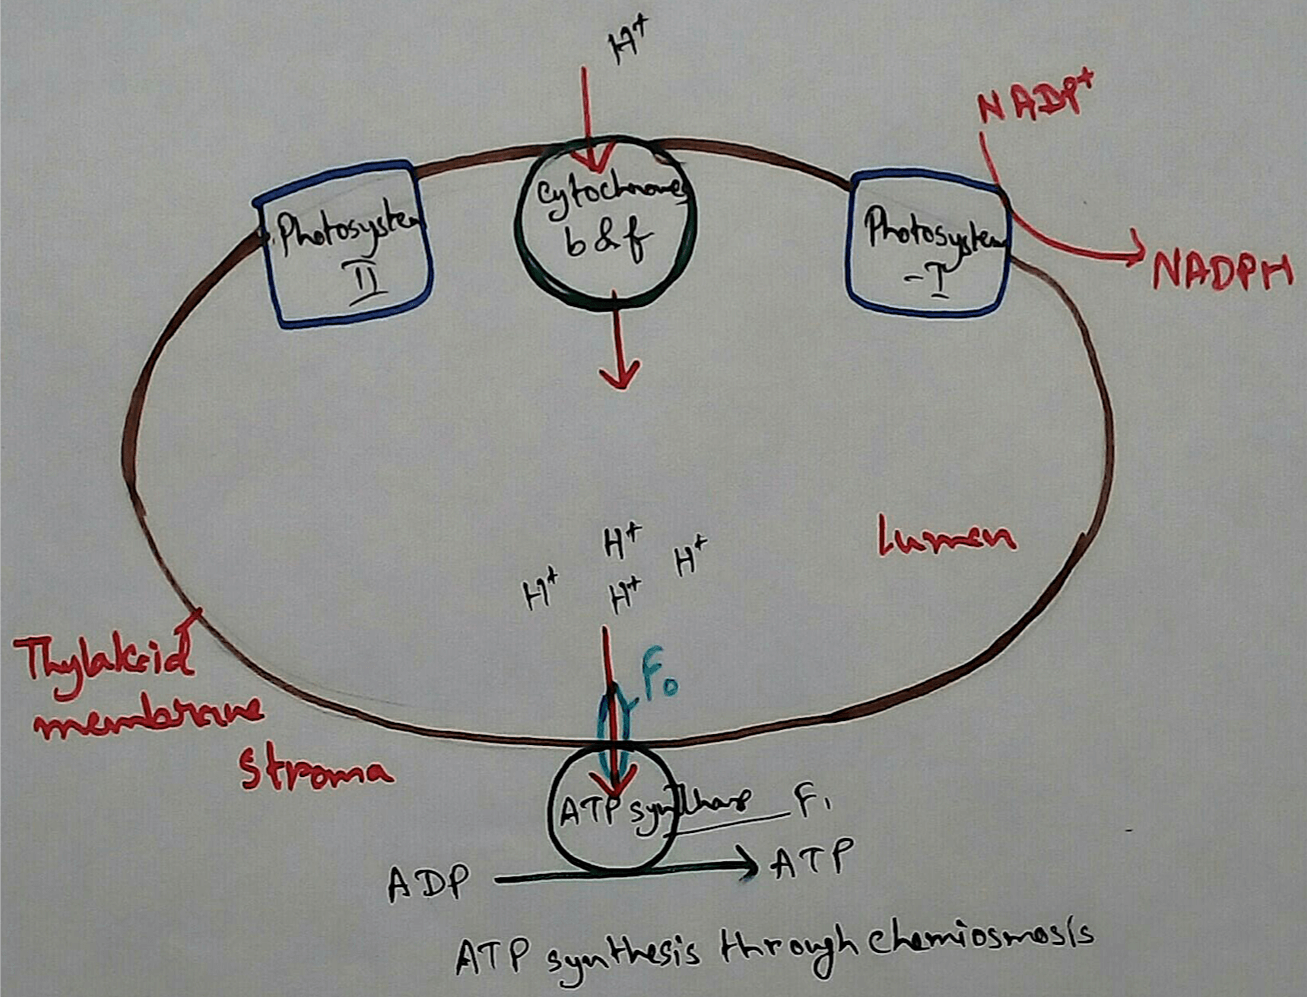 H⁺
NADP⁺
Cytochrome
b & f
Photosystem
II
Photosystem
-I
NADPH
H⁺
H⁺
H⁺
H⁺
Lumen
Thylakoid
membrane
F₀
Stroma
ATP synthase
F₁
ADP
ATP
ATP synthesis through chemiosmosis